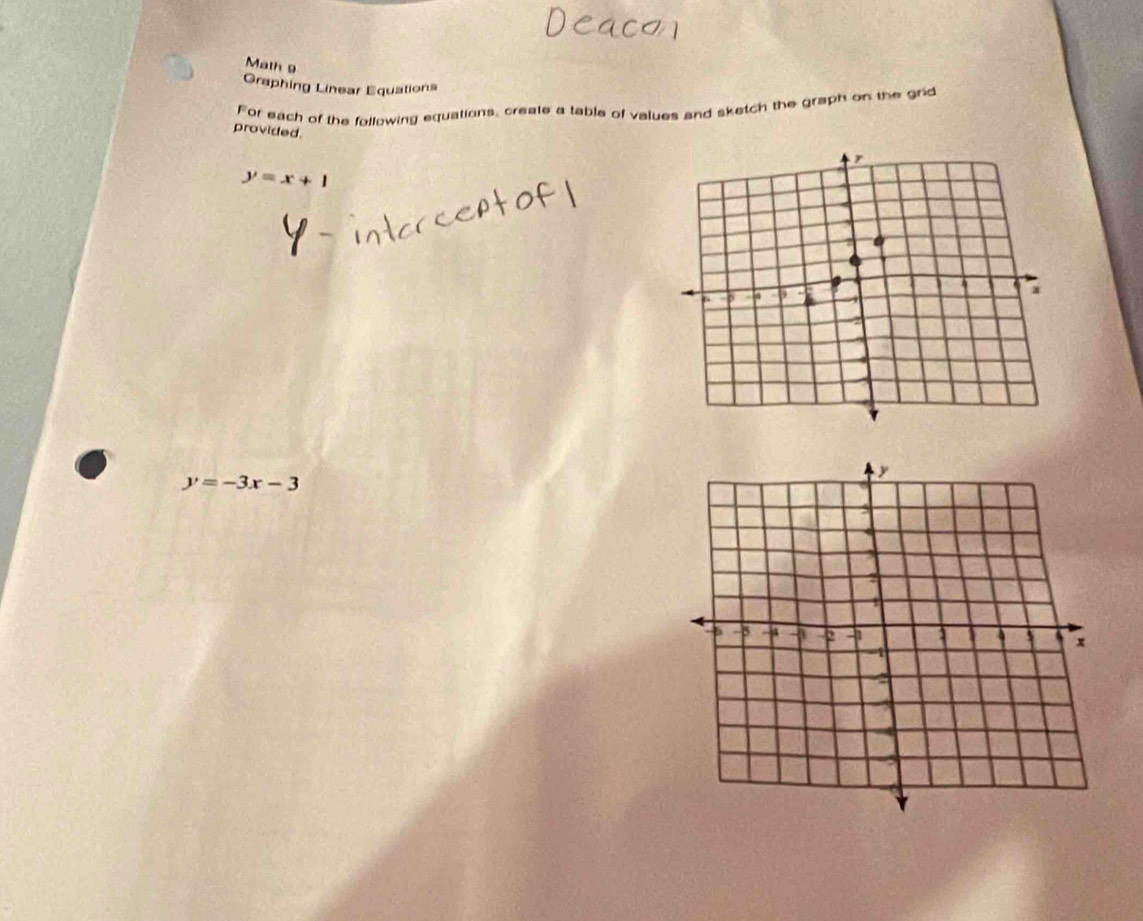 Deacon
Math 9
Graphing Linear Equations
For each of the following equations, create a table of values and sketch the graph on the grid
provided.
y = x + 1
y - intercept of 1
y
x
y = -3x - 3
y
-6 -5 -4 -3 -2 -1 2 3 4 5 6
x
-1